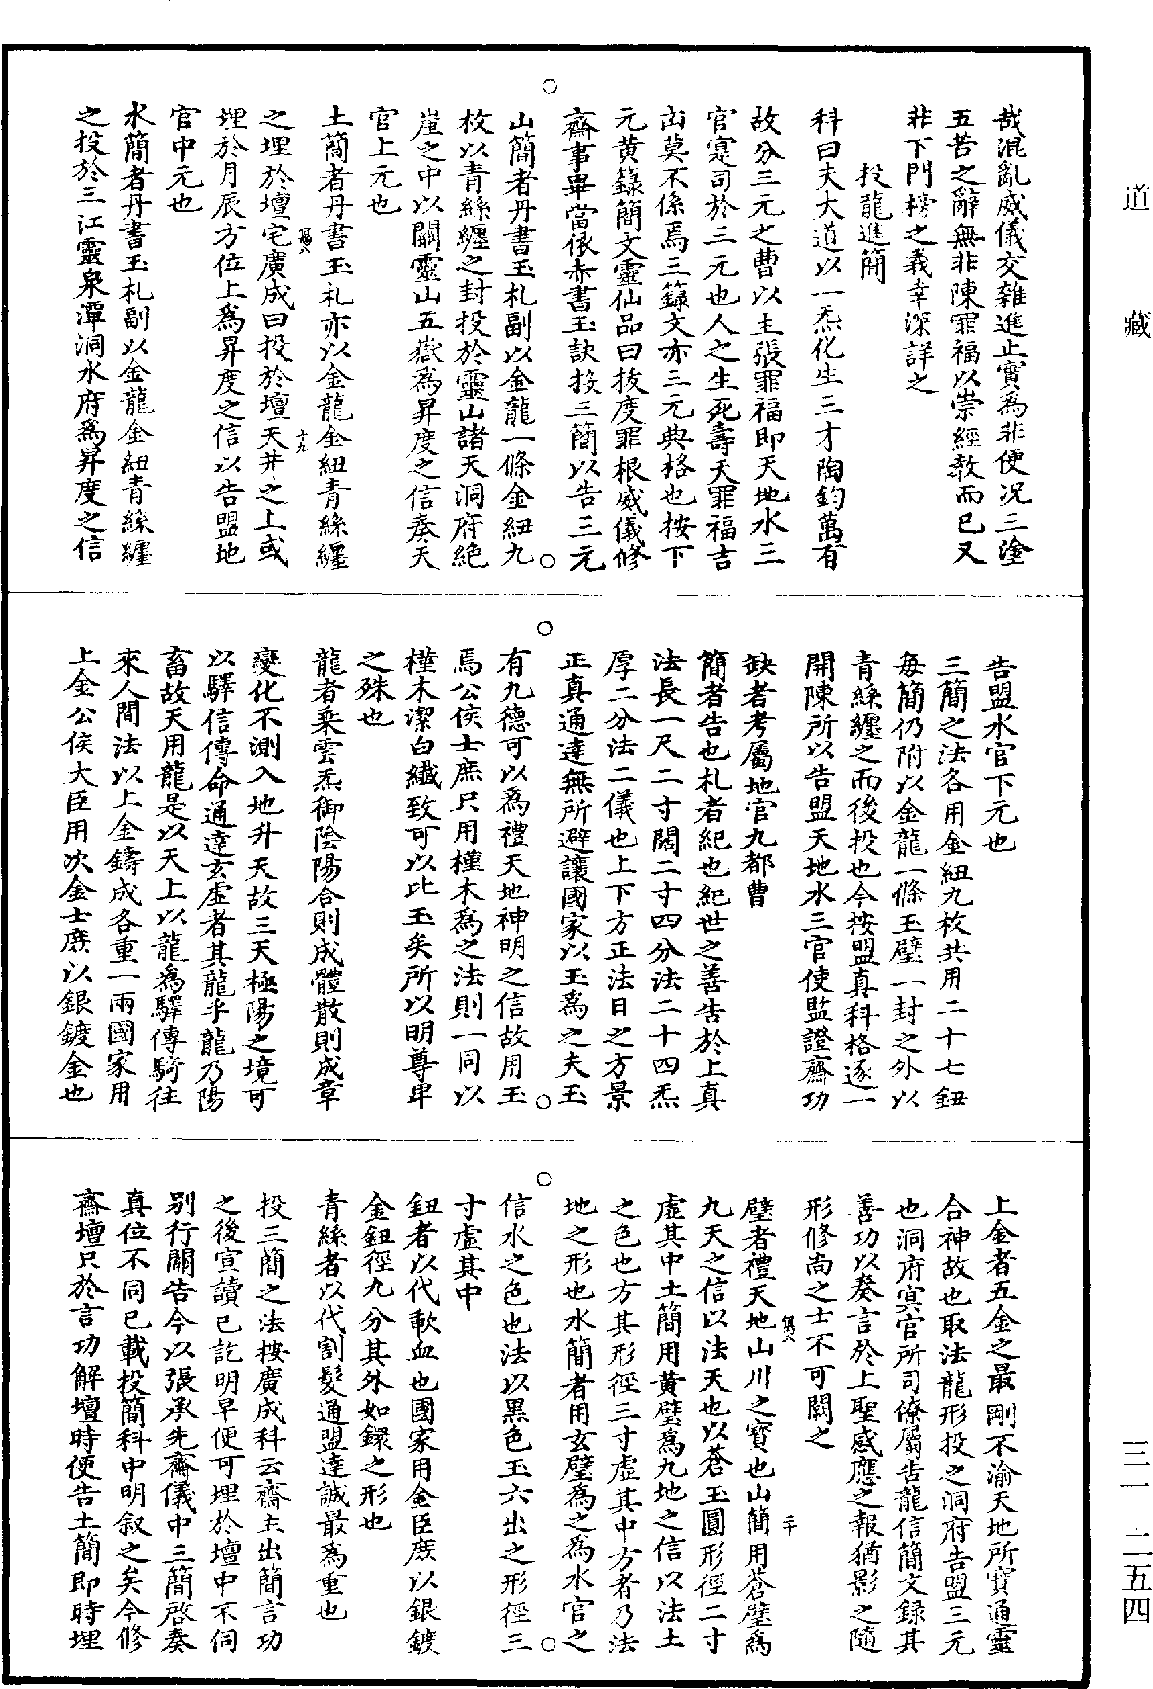 道藏
三一 二五四
哉混亂威儀交雜進止實為非便況三塗
五苦之辭無非陳罪福以崇經教而已又
非下門榜之義幸深詳之
投龍進簡
科曰夫大道以一炁化生三才陶鈞萬有
故分三元之曹以主張罪福即天地水三
官寔司於三元也人之生死壽夭罪福吉
凶莫不係焉三籙文亦三元典格也按下
元黃籙簡文靈仙品曰拔度罪根威儀修
齋事畢當依赤書玉訣投三簡以告三元
山簡者丹書玉札副以金龍一條金紐九
枚以青絲纏之封投於靈山諸天洞府絶
崖之中以關靈山五嶽為昇度之信奏天
官上元也
土簡者丹書玉札亦以金龍金紐青絲纏
之埋於壇宅廣成曰投於壇天井之上或
十九
埋於月辰方位上為昇度之信以告盟地
官中元也
水簡者丹書玉札副以金龍金紐青絲纏
之投於三江靈泉潭洞水府為昇度之信
告盟水官下元也
三簡之法各用金紐九枚共用二十七鈕
每簡仍附以金龍一條玉璧一封之外以
青絲纏之而後投也今按盟真科格逐一
開陳所以告盟天地水三官使監證齋功
缺者考屬地官九都曹
簡者告也札者紀也紀世之善告於上真
法長一尺二寸闊二寸四分法二十四炁
厚二分法二儀也上下方正法日之方景
正真通達無所避讓國家以玉為之夫玉
有九德可以為禮天地神明之信故用玉
焉公侯士庶只用槿木為之法則一同以
槿木潔白纖致可以比玉矣所以明尊卑
之殊也
龍者乘雲炁御陰陽合則成體散則成章
變化不測入地升天故三天極陽之境可
以驛信傳命通達玄虛者其龍乎龍乃陽
畜故天用龍是以天上以龍為驛傳騎往
來人間法以上金鑄成各重一兩國家用
上金公侯大臣用次金士庶以銀鍍金也
上金者五金之最剛不渝天地所寶通靈
合神故也取法龍形投之洞府告盟三元
也洞府冥官所司僚屬告龍信簡文録其
善功以奏言於上聖感應之報猶影之隨
形修尚之士不可闕之
璧者禮天地山川之寶也山簡用蒼璧為
二十
九天之信以法天也以蒼玉圓形徑二寸
虛其中土簡用黃璧為九地之信以法土
之色也方其形徑三寸虛其中方者乃法
地之形也水簡者用玄璧為之為水官之
信水之色也法以黑色玉六出之形徑三
寸虛其中
鈕者以代歃血也國家用金臣庶以銀鍍
金鈕徑九分其外如鐶之形也
青絲者以代割髮通盟達誠最為重也
投三簡之法按廣成科云齋主出簡言功
之後宣讀已訖明早便可埋於壇中不伺
別行關告今以張承先齋儀中三簡啓奏
真位不同已載投簡科中明叙之矣今修
齋壇只於言功解壇時便告土簡即時埋